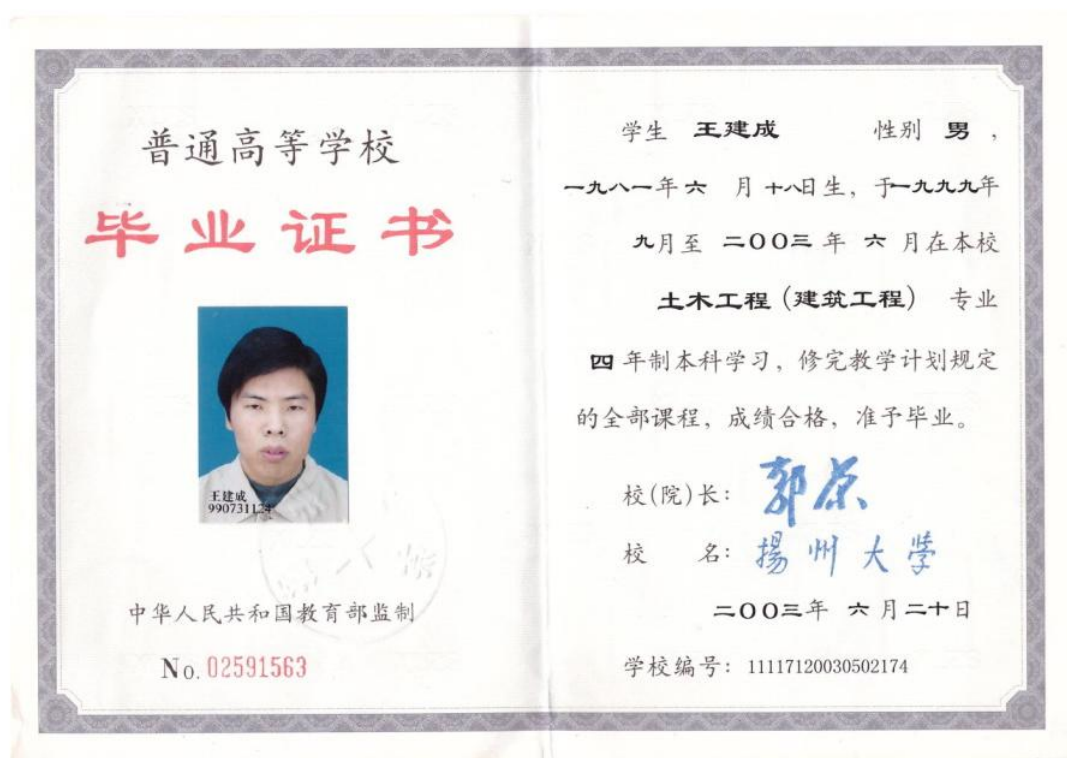 普通高等学校
毕业证书
王建成
990731124
中华人民共和国教育部监制
No. 02591563
学生 王建成 性别 男，
一九八一年 六 月 十八日生，于一九九九年
九月至 二〇〇三 年 六 月在本校
土木工程（建筑工程） 专业
四 年制本科学习，修完教学计划规定
的全部课程，成绩合格，准予毕业。
校(院)长：郭荣
校 名：揚州大学
二〇〇三年 六 月二十日
学校编号：11117120030502174